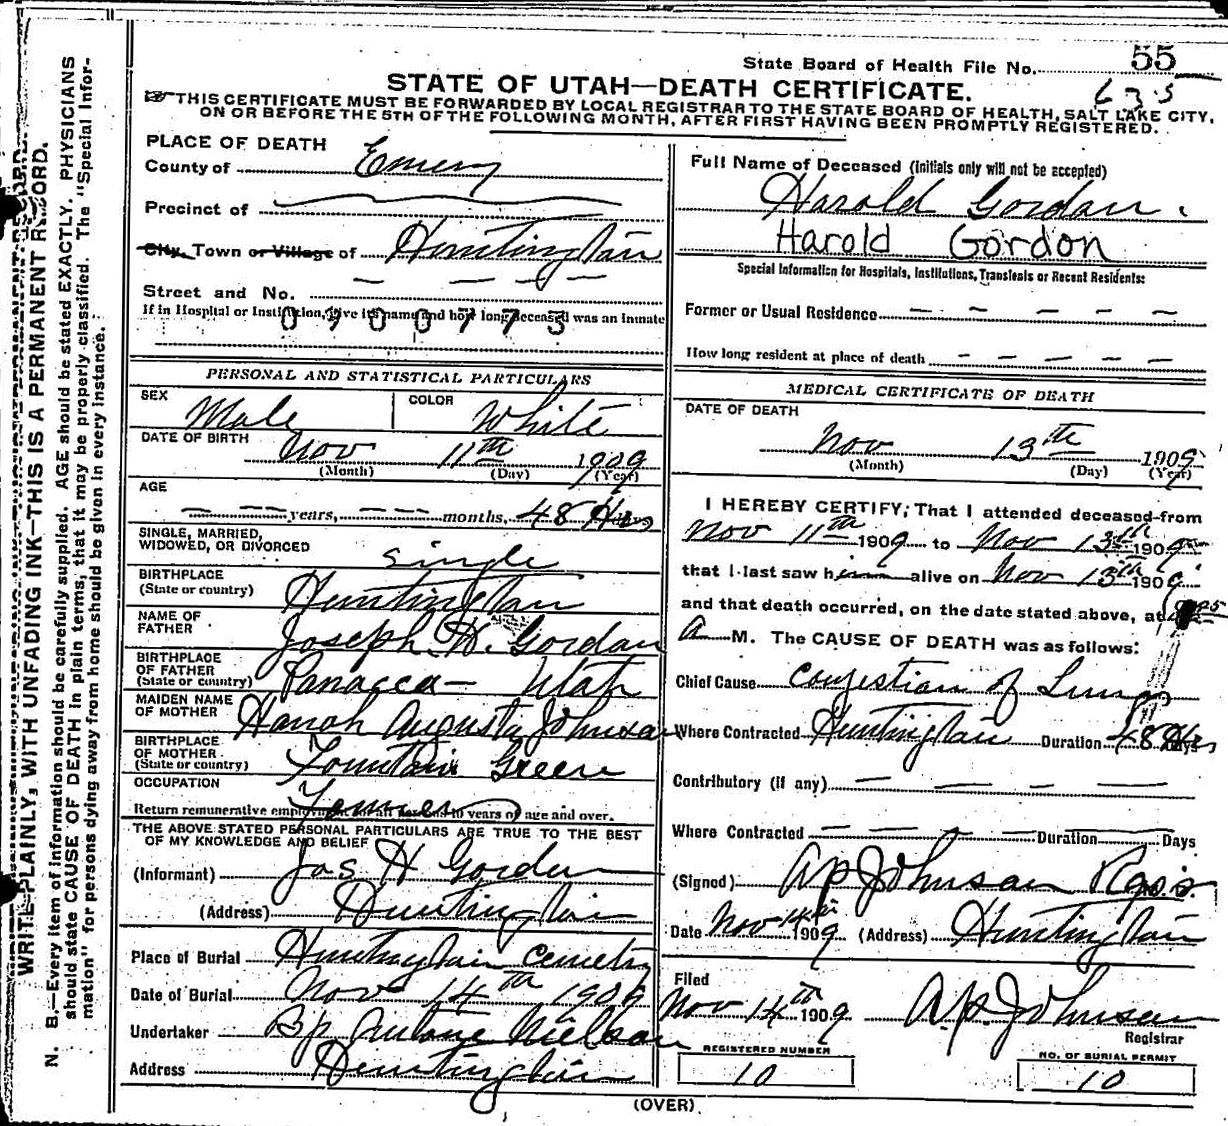 State Board of Health File No. 55
STATE OF UTAH—DEATH CERTIFICATE.
635
THIS CERTIFICATE MUST BE FORWARDED BY LOCAL REGISTRAR TO THE STATE BOARD OF HEALTH, SALT LAKE CITY,
ON OR BEFORE THE 5TH OF THE FOLLOWING MONTH, AFTER FIRST HAVING BEEN PROMPTLY REGISTERED.
WRITE PLAINLY, WITH UNFADING INK—THIS IS A PERMANENT RECORD.
N. B.—Every item of information should be carefully supplied. AGE should be stated EXACTLY. PHYSICIANS
should state CAUSE OF DEATH in plain terms, that it may be properly classified. The "Special Infor-
mation" for persons dying away from home should be given in every instance.
PLACE OF DEATH
County of Emery
Precinct of
City, Town or Village of Huntington
Street and No. — — — —
If in Hospital or Institution, give its name and how long deceased was an inmate
0900775
PERSONAL AND STATISTICAL PARTICULARS
SEX Male COLOR White
DATE OF BIRTH Nov 11th 1909
(Month) (Day) (Year)
AGE
— — — years, — — — months, 48 Hrs
SINGLE, MARRIED,
WIDOWED, OR DIVORCED single
BIRTHPLACE
(State or country) Huntington
NAME OF
FATHER Joseph H. Gordon
BIRTHPLACE
OF FATHER
(State or country) Panacca — Utah
MAIDEN NAME
OF MOTHER Hanah Augusta Johnson
BIRTHPLACE
OF MOTHER
(State or country) Fountain Green
OCCUPATION
Return remunerative employment for all persons 10 years of age and over.
THE ABOVE STATED PERSONAL PARTICULARS ARE TRUE TO THE BEST
OF MY KNOWLEDGE AND BELIEF
(Informant) Jos H Gordon
(Address) Huntington
Place of Burial Huntington Cemetry
Date of Burial Nov 14th 1909
Undertaker Bp Antone Nielson
Address Huntington
Full Name of Deceased (initials only will not be accepted)
Harold Gordon.
Harold Gordon
Special Information for Hospitals, Institutions, Transients or Recent Residents:
Former or Usual Residence — — — — —
How long resident at place of death — — — — —
MEDICAL CERTIFICATE OF DEATH
DATE OF DEATH
Nov 13th 1909
(Month) (Day) (Year)
I HEREBY CERTIFY, That I attended deceased from
Nov 11th 1909 to Nov 13th 1909
that I last saw him alive on Nov 13th 1909
and that death occurred, on the date stated above, at
A M. The CAUSE OF DEATH was as follows:
Chief Cause Conjestion of Lungs
Where Contracted Huntington Duration 48 Hrs
Contributory (if any) — — — — —
Where Contracted — — — — Duration — Days
(Signed) A P Johnson Regis.
Date Nov 14th 1909 (Address) Huntington
Filed
Nov 14th 1909 A.P. Johnson
Registrar
REGISTERED NUMBER
10
NO. OF BURIAL PERMIT
10
(OVER)